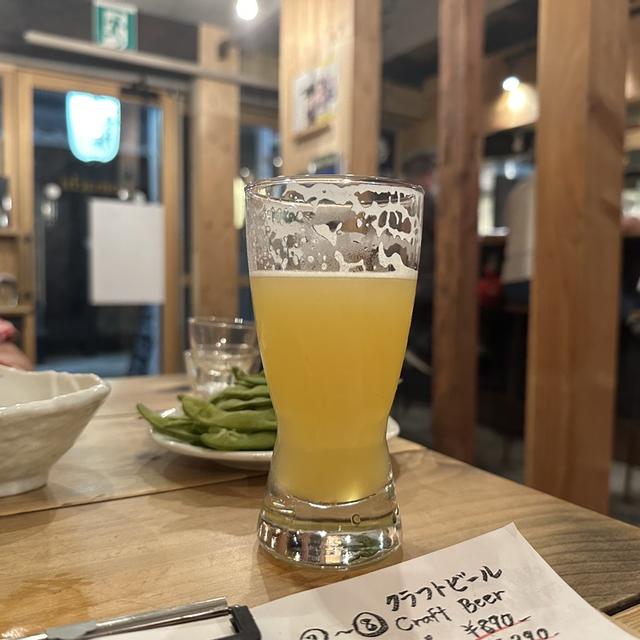 クラフトビール
⑦~⑧ Craft Beer
¥890